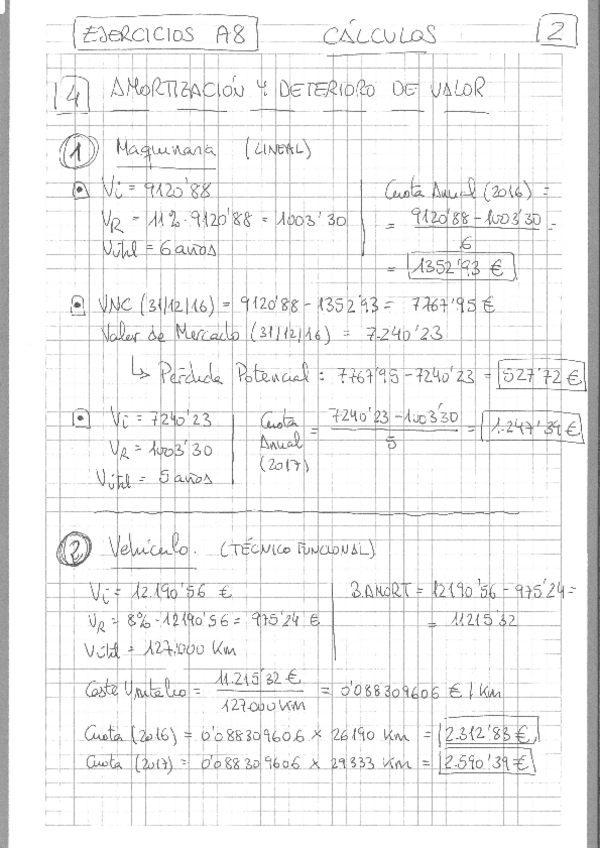 EJERCICIOS A8 CÁLCULOS 2
4 AMORTIZACIÓN Y DETERIORO DE VALOR
1 Maquinaria (LINEAL)
Vi = 9120'88
VR = 11%·9120'88 = 1003'30
Vútil = 6 años
Cuota Anual (2016) =
= 9120'88 - 1003'30 =
6
= 1352'93 €
VNC (31/12/16) = 9120'88 - 1352'93 = 7767'95 €
Valor de Mercado (31/12/16) = 7.240'23
↳ Pérdida Potencial: 7767'95 - 7240'23 = 527'72 €
Vi = 7240'23
VR = 1003'30
Vútil = 5 años
Cuota Anual (2017) = 7240'23 - 1003'30 = 1.247'39 €
5
2 Vehículo. (TÉCNICO FUNCIONAL)
Vi = 12.190'56 €
VR = 8%·12190'56 = 975'24 €
Vútil = 127.000 Km
B.AMORT = 12190'56 - 975'24 =
= 11215'32
Coste Unitario = 11.215'32 € = 0'088309606 € / Km
127.000 KM
Cuota (2016) = 0'088309606 × 26190 Km = 2.312'83 €
Cuota (2017) = 0'088309606 × 29333 Km = 2.590'39 €